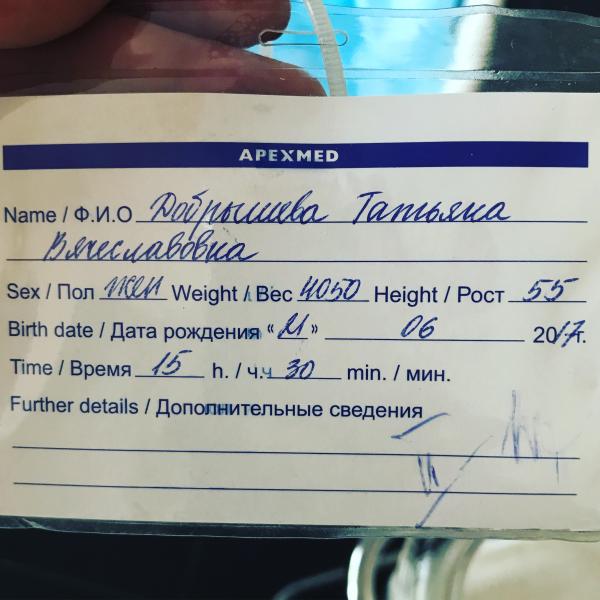 APEXMED
Name / Ф.И.О Добрышева Татьяна
Вячеславовна
Sex / Пол жен Weight / Вес 4050 Height / Рост 55
Birth date / Дата рождения « 21 » 06 2017г.
Time / Время 15 h. / ч. 30 min. / мин.
Further details / Дополнительные сведения